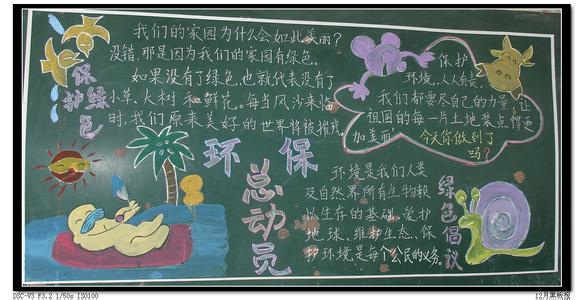 保护绿色
我们的家园为什么会如此美丽？
没错，那是因为我们的家园有绿色。
如果没有了绿色，也就代表没有了
小草、大树和鲜花。每当风沙来临
时，我们原来美好的世界将被摧残
保护
环境，人人有责，
我们都要尽自己的力量，让
祖国的每一片土地装点得更
加美丽！今天你做到了
吗？
环保
总动员
环境是我们人类
及自然界所有生物赖
以生存的基础，爱护
地球、维护生态、保
护环境是每个公民的义务。
绿色倡议
DSC-V3 F3.2 1/50s ISO100
12月黑板报